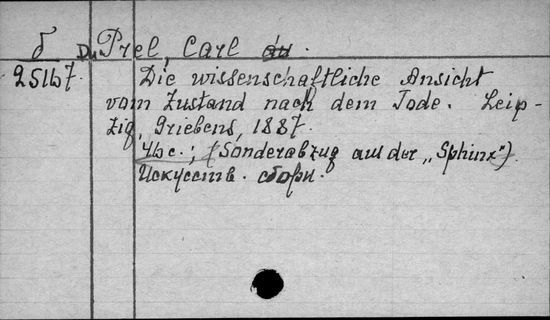 б Du Prel, Carl du.
25167. Die wissenschaftliche Ansicht
vom Zustand nach dem Tode. Leip-
zig, Griebens, 1887.
46 c.; (Sonderabzug aus der „Sphinx")
Искусств. сборн.